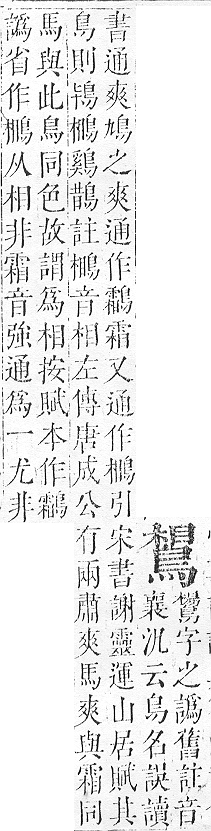 鸘字之譌舊註音
襄汎云鳥名誤讀
書通爽鳩之爽通作鸘霜又通作引宋書謝靈運山居賦其
鳥則鴇鷄鵲註音相左傳唐成公有兩肅爽馬爽與霜同
馬與此鳥同色故謂爲相按賦本作鸘
譌省作从相非霜音強通爲一尤非